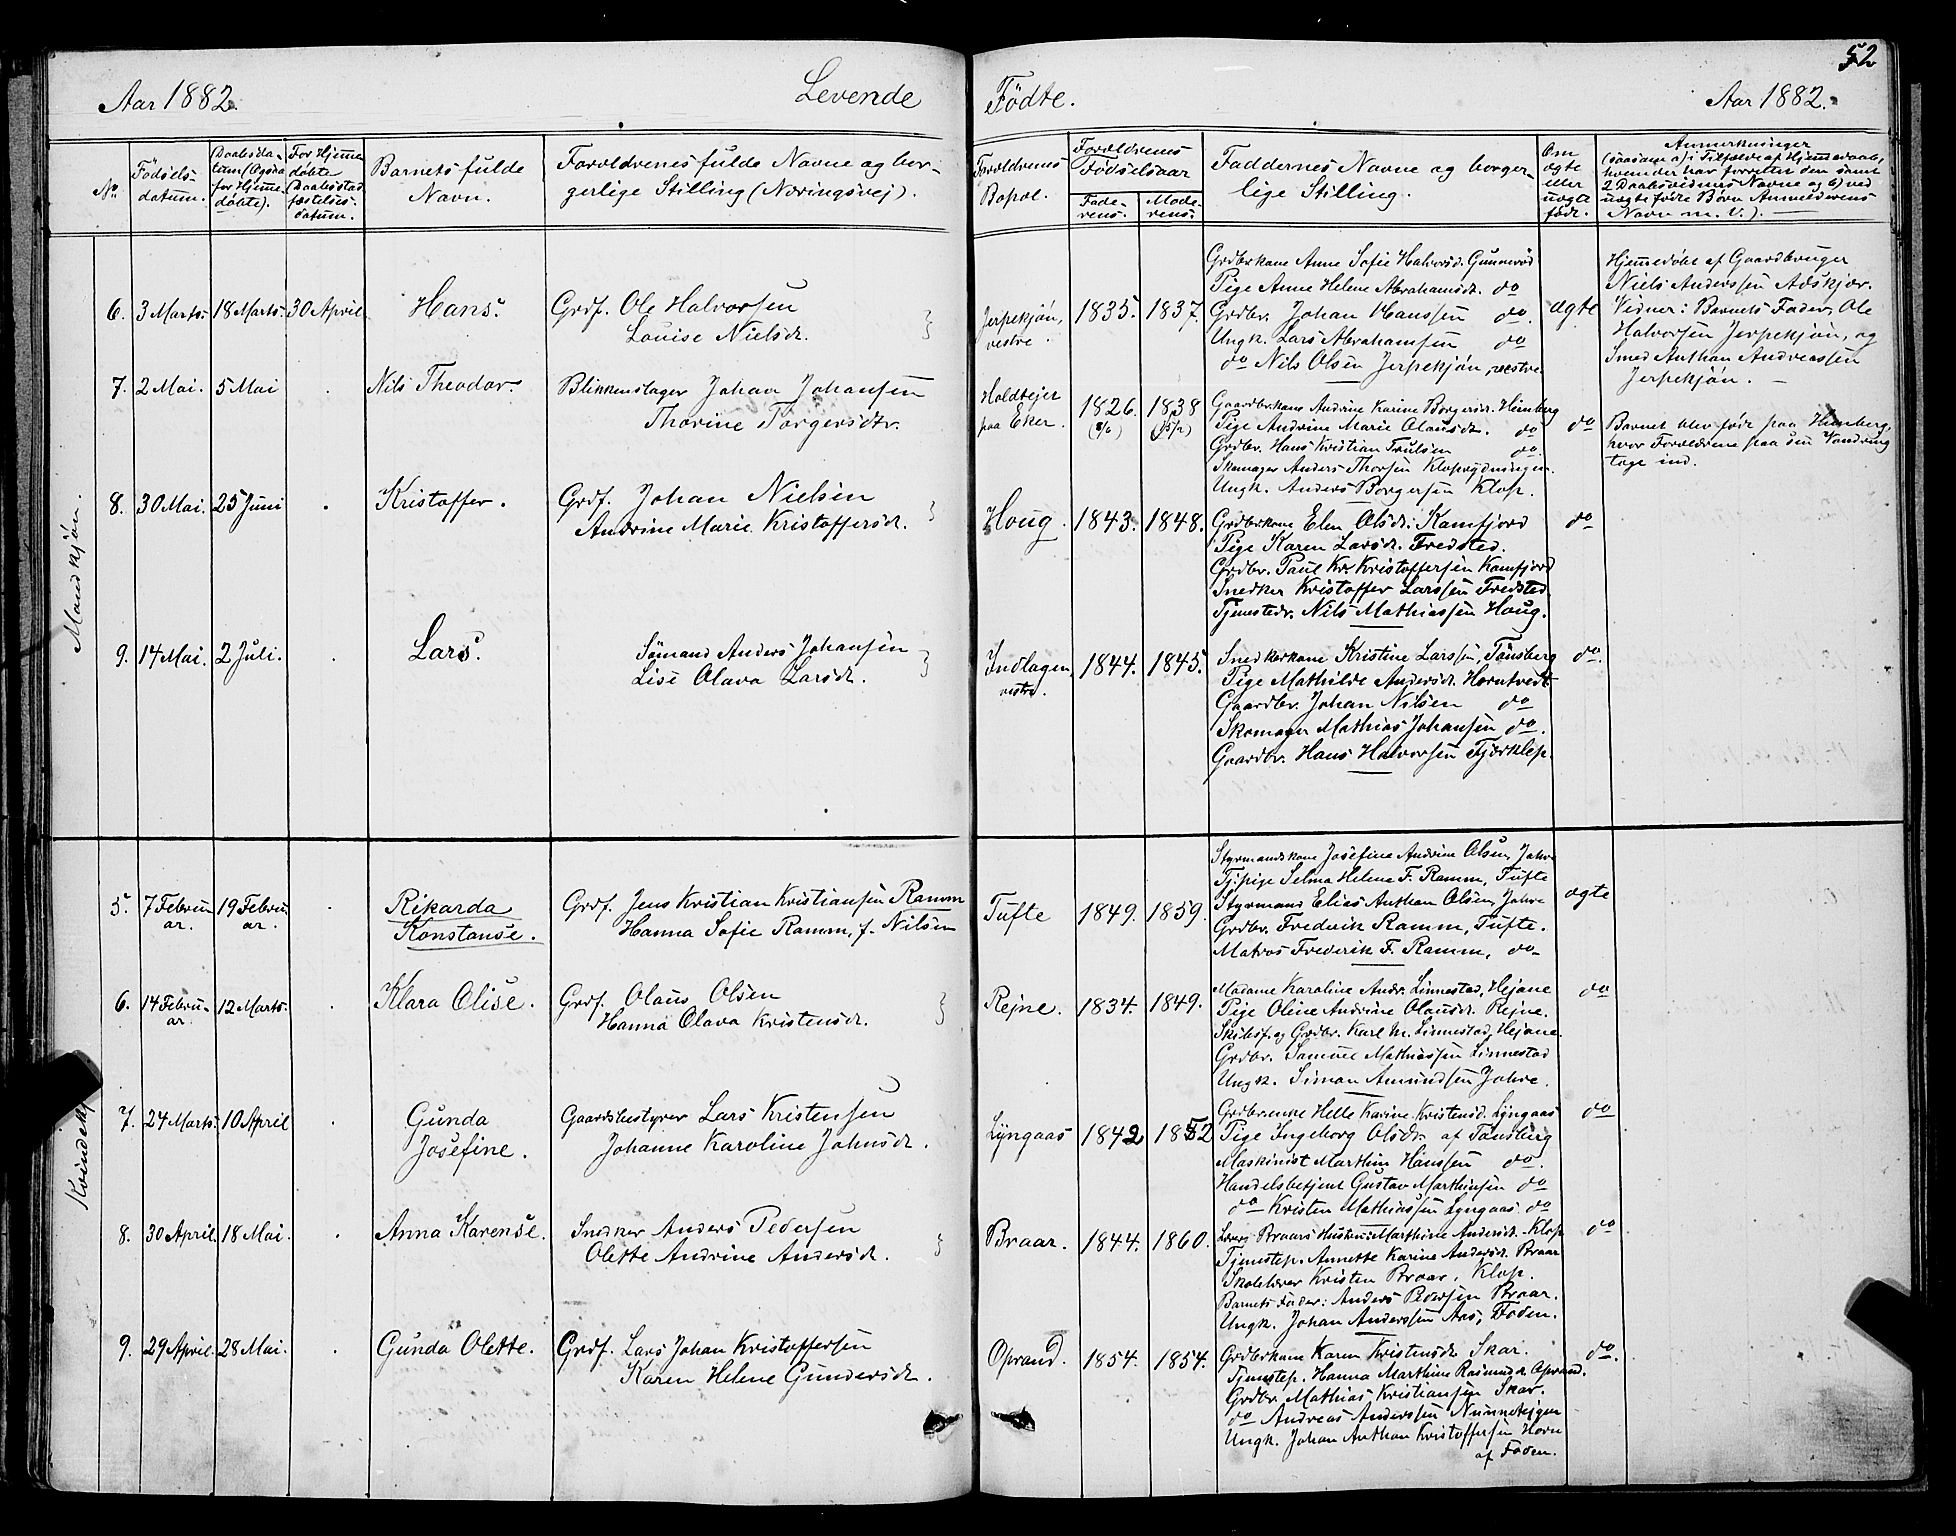 52
Aar 1882. Levende Fødte. Aar 1882.
No. Fødsels-datum. Daabsda-tum (Ogsaa for Hjemme-døbte). For Hjemme døbte Daabsstad-fæstelses-datum. Barnets fulde Navn. Forældrenes fulde Navne og bor-gerlige Stilling (Næringsvej). Forældrenes Bopæl. Forældrenes Fødselsaar Fade-rens. Mode-rens. Faddernes Navne og borger-lige Stilling. Om ægte eller uægte født. Anmerkninger (saasom a) i Tilfælde af Hjemmedaab, hvem der har forrettet den samt 2 Daabsvidners Navne og b) ved uægte fødte Børn Anmelderens Navn m. V.).
Mandkjøn.
6. 3 Marts. 18 Marts. 30 April Hans. Grdf. Ole Halvorsen
Louise Nielsdt.
Jerpekjøn, vestre. 1835. 1837.
Grdbrkone Anne Sofie Halvorsd. Gunnerød
Pige Anne Helene Abrahamsdt. do
Grdbr. Johan Hanssen do.
Ungk. Lars Abrahamsen do
do Nils Olsen Jerpekjøn, vestre
ægte
Hjemmedøbt af Gaardbruger
Niels Anderssen Adskjer.
Vidner: Barnets Fader, Ole
Halvorsen Jerpekjøn, og
Smed Anthon Andreassen
Jerpekjøn.
7. 2 Mai. 5 Mai Nils Theodor. Blikkenslager Johan Johansen
Thorine Torgersdtr.
Holdtejer
paa Eker. 1826. 1838
Gaardbrkone Andrine Karine Borgersdt. Heimberg
Pige Andrine Marie Olausdt. do
Grdbr. Hans Kristian Trulsen do.
Skomager Anders Thorsen Kloprydningen
Ungk. Anders Borgersen Klop.
do
Barnet blev født paa Himberg,
hvor Forældrene paa sin Vandring
toge ind.
8. 30 Mai. 25 Juni Kristoffer. Grdf. Johan Nielsen
Andrine Marie Kristoffersdt.
Houg. 1843. 1848.
Grdbrkone Elen Olsdt. Kamfjord
Pige Karen Larsdt. Fredsted.
Grdbr. Paul Kr. Kristoffersen Kamfjord
Snedker Kristoffer Larssen Fredsted.
Tjenestedr. Nils Mathiassen Houg.
do
9. 14 Mai. 2 Juli. Lars. Sømand Anders Johansen
Lise Olava Larsdt.
Indlagen, vestre. 1844. 1845.
Snedkerkone Kristine Larssen, Tønsberg
Pige Mathilde Andersdt. Horntvedt
Gaardbr. Johan Nilsen do
Skomager Mathias Johansen do.
Gaardbr. Hans Halvorsen Fjærklep.
do.
Kvindekj
5. 7 Februar. 19 Februar. Rikarda
Konstanse. Grdf. Jens Kristian Kristiansen Ramm
Hanna Sofie Ramm, f. Nilsen
Tufte 1849. 1859.
Styrmandskone Josefine Andrine Olsen, Jahre
Tj.pige Selma Helene F. Ramm, Tufte
Styrmand Elias Anthon Olsen, Jahre
Grdbr. Frederik Ramm, Tufte.
Matros Frederik F. Ramm, do
ægte
6. 14 Februar. 12 Marts. Klara Olise. Grdf. Olaus Olsen
Hanna Olava Kristensdt.
Rejne. 1834. 1849.
Madame Karoline Andr. Linnestad, Hejane
Pige Oline Andrine Olausdt. Rejne.
Skibsf. og Grdbr. Karl M. Linnestad, Hejane.
Grdbr. Samuel Mathiassen Linnestad
Ungk. Simon Amundsen Jahre.
do
7. 24 Marts. 10 April Gunda
Josefine. Gaardsbestyrer Lars Kristensen
Johanne Karoline Johnsdt.
Lyngaas 1842 1852
Grdbrenke Helle Karine Kristensd. Lyngaas
Pige Ingeborg Olsdt. af Tønsberg
Maskinist Marthin Hanssen do.
Handelsbetjent Gustav Marthinsen do
do Kristen Mathiassen Lyngaas do
do
8. 30 April. 18 Mai. Anna Karense. Snedker Anders Pedersen
Olette Andrine Andersdt.
Braar. 1844. 1860.
Lærer Braars Hustru Marthine Andersdt. Klop
Tjenestep. Annette Karine Andersdt. Braar
Skolelærer Kristen Braar, Klop.
Barnets Fader: Anders Pedersen Braar.
Ungk. Johan Anderssen Aas, Foden.
do
9. 29 April. 28 Mai. Gunda Olette. Grdf. Lars Johan Kristoffersen
Karen Helene Gundersdt.
Oprand. 1854. 1854.
Grdbrkone Karen Kristensdt. Skar.
Tjenestep. Hanna Marthine Rasmusdt. Oprand.
Grdbr. Mathias Kristiansen Skar.
do Andreas Anderssen Nunnetejgen
Ungk. Johan Anthon Kristoffersen Horn
af Foden.
do.